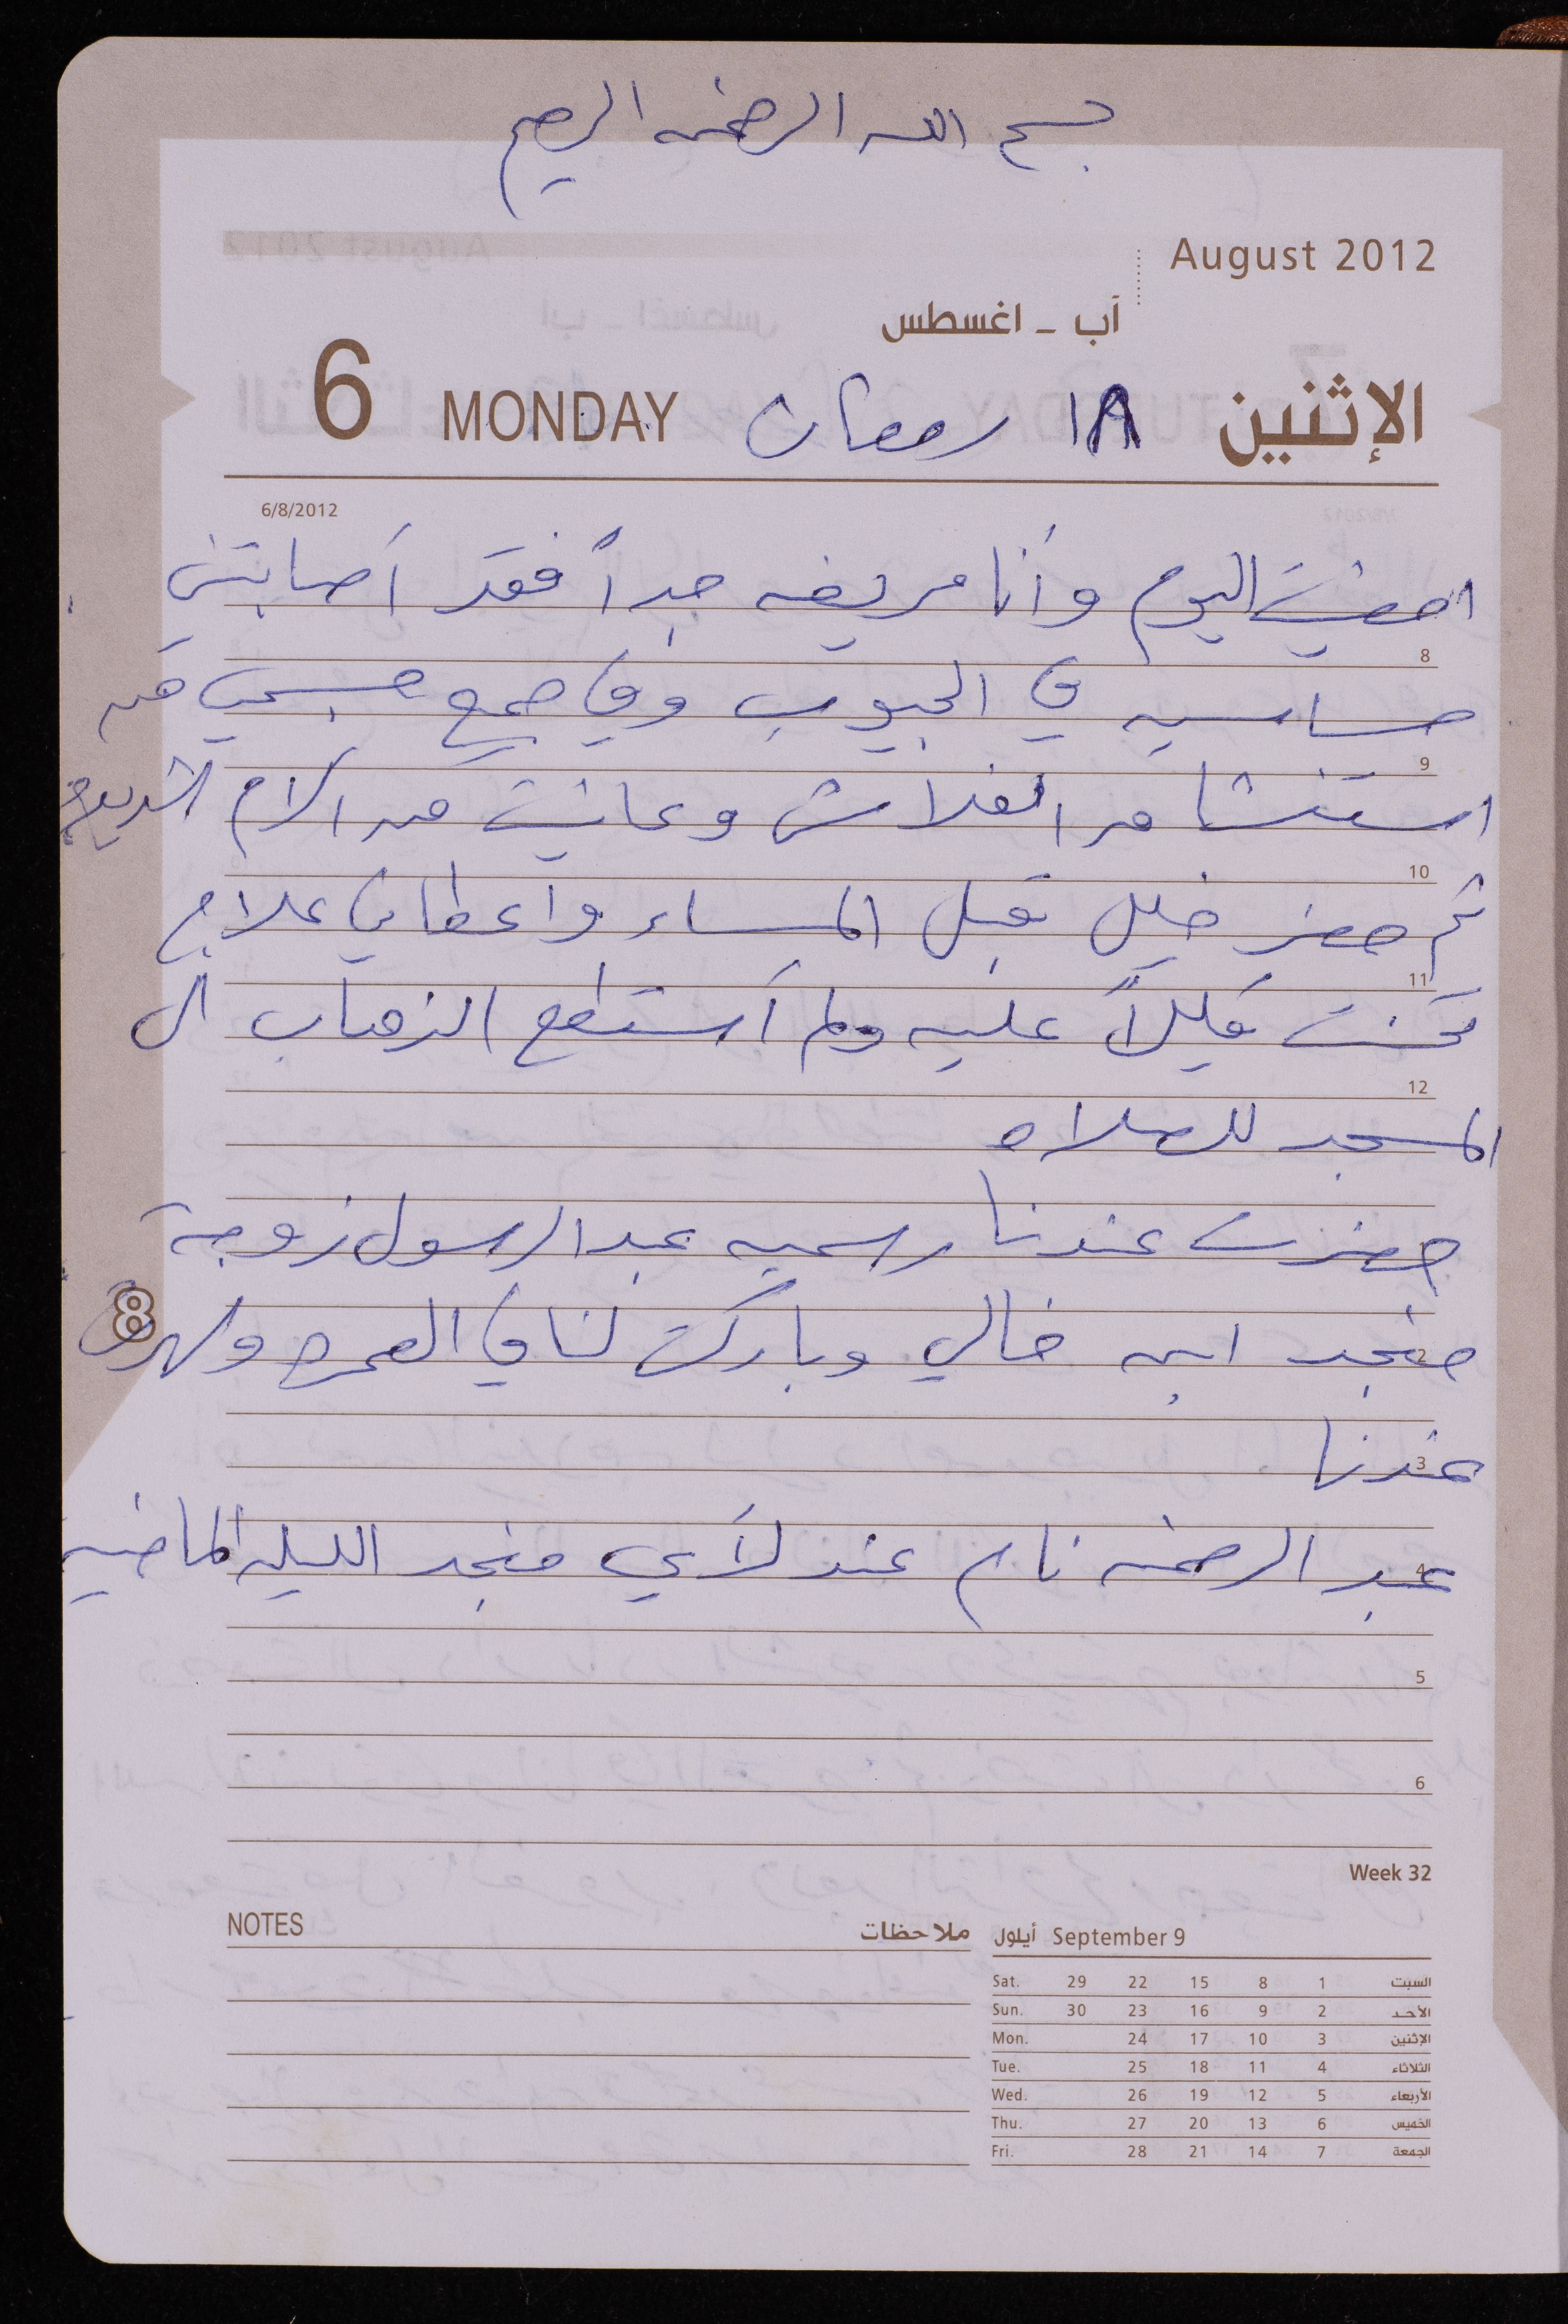 بسم الله الرحمن الرحيم
August 2012
آب - اغسطس
الإثنين ١٨ رمضان MONDAY 6
6/8/2012
امضيت اليوم وأنا مريضه جداً فقد أصابتني
حساسيه في الجيوب وفي جميع جسمي من
استنشا من الفلاش وعانيت من الام الشديده
8
9
ثم حضر خليل قبل المساء واعطاني علاج
10
تحسنت قليلاً عليه ولم أستطع الذهاب الى
11
12
المسجد للصلاه
حضرت عندنا رسميه عبد الرسول زوجة
منجد ابن خالي وباركت لنا في العمره وسهرت
8
2
عندنا
3
عبد الرحمن نام عند لأي منجد الليله الماضيه
4
5
6
Week 32
NOTES ملاحظات
أيلول September 9
Sat. 29 22 15 8 1 السبت
Sun. 30 23 16 9 2 الأحد
Mon. 24 17 10 3 الإثنين
Tue. 25 18 11 4 الثلاثاء
Wed. 26 19 12 5 الأربعاء
Thu. 27 20 13 6 الخميس
Fri. 28 21 14 7 الجمعة